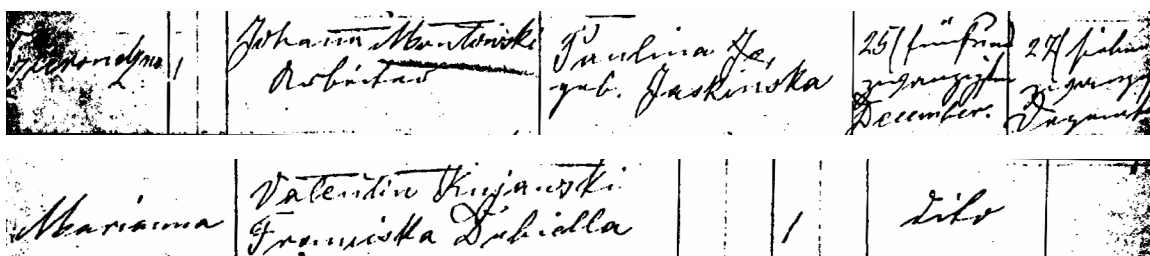 Johann Montowski
Arbeiter
Paulina
geb. Jaskinska
25/ fünfund
zwanzigsten
December.
27/ sieben
zwanzig
Marianna
Valentin Kujawski
Franciska Dubiella
1
dito